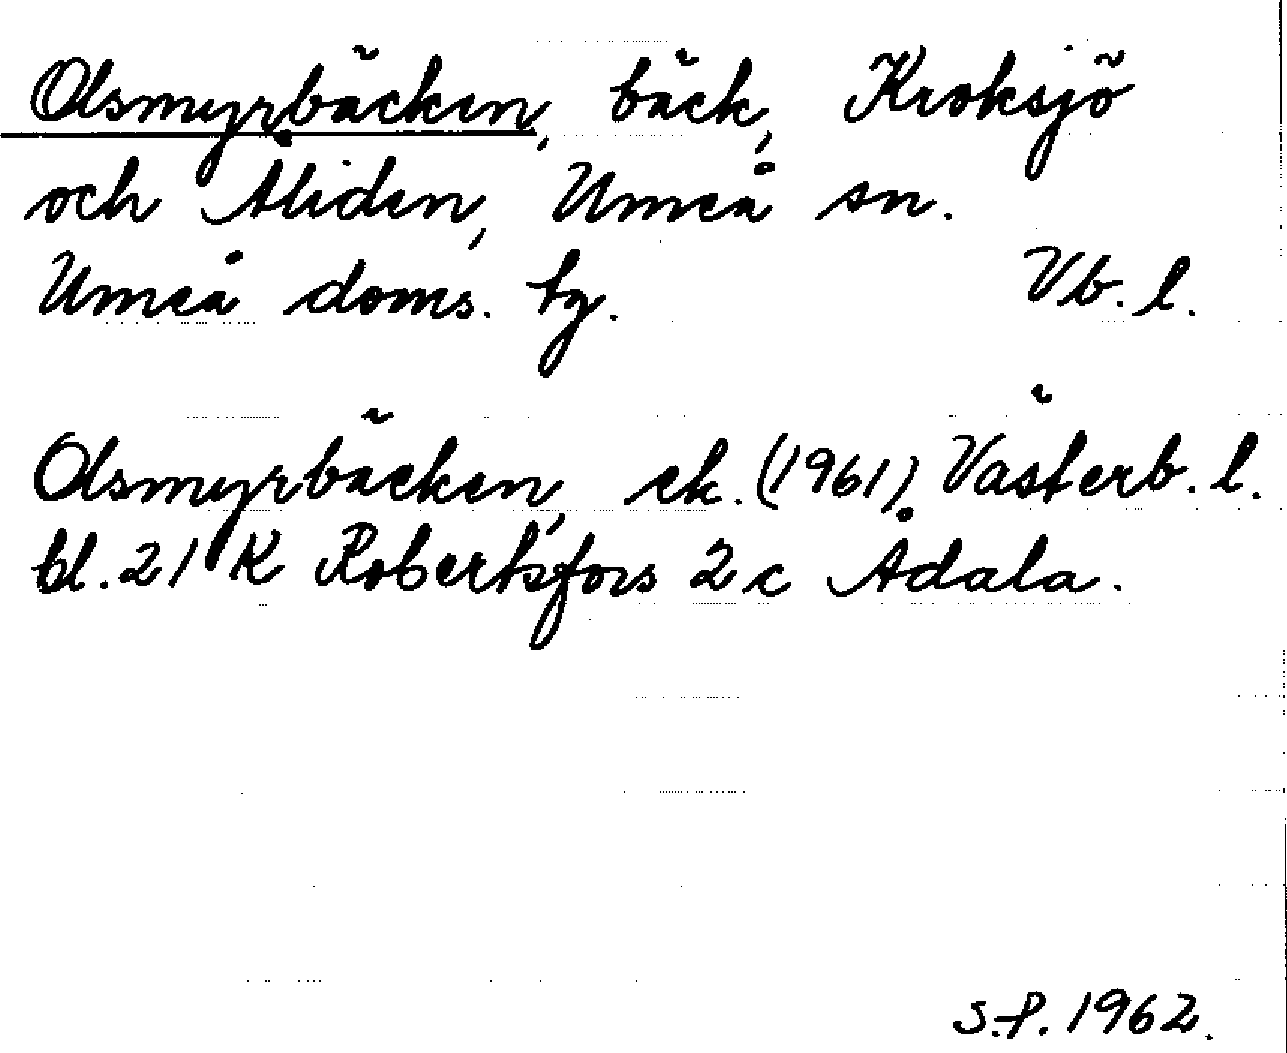 Olsmyrbäcken, bäck, Kroksjö
och Åliden, Umeå sn.
Umeå doms. tg. Vb. l.
Olsmyrbäcken, ek. (1961), Västerb. l.
bl. 21 K Robertsfors 2 c Ådala.
S.P. 1962.